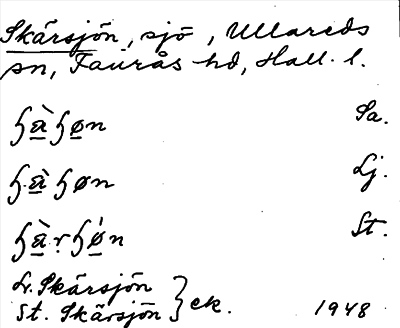 Skärsjön, sjö, Ullareds
sn, Faurås hd, Hall. l.
ɧὰɧøn Sa.
ɧ.ὰɧøn Lj.
ɧὰr̤ɧǿn St.
L. Skärsjön
St. Skärsjön } ek. 1948